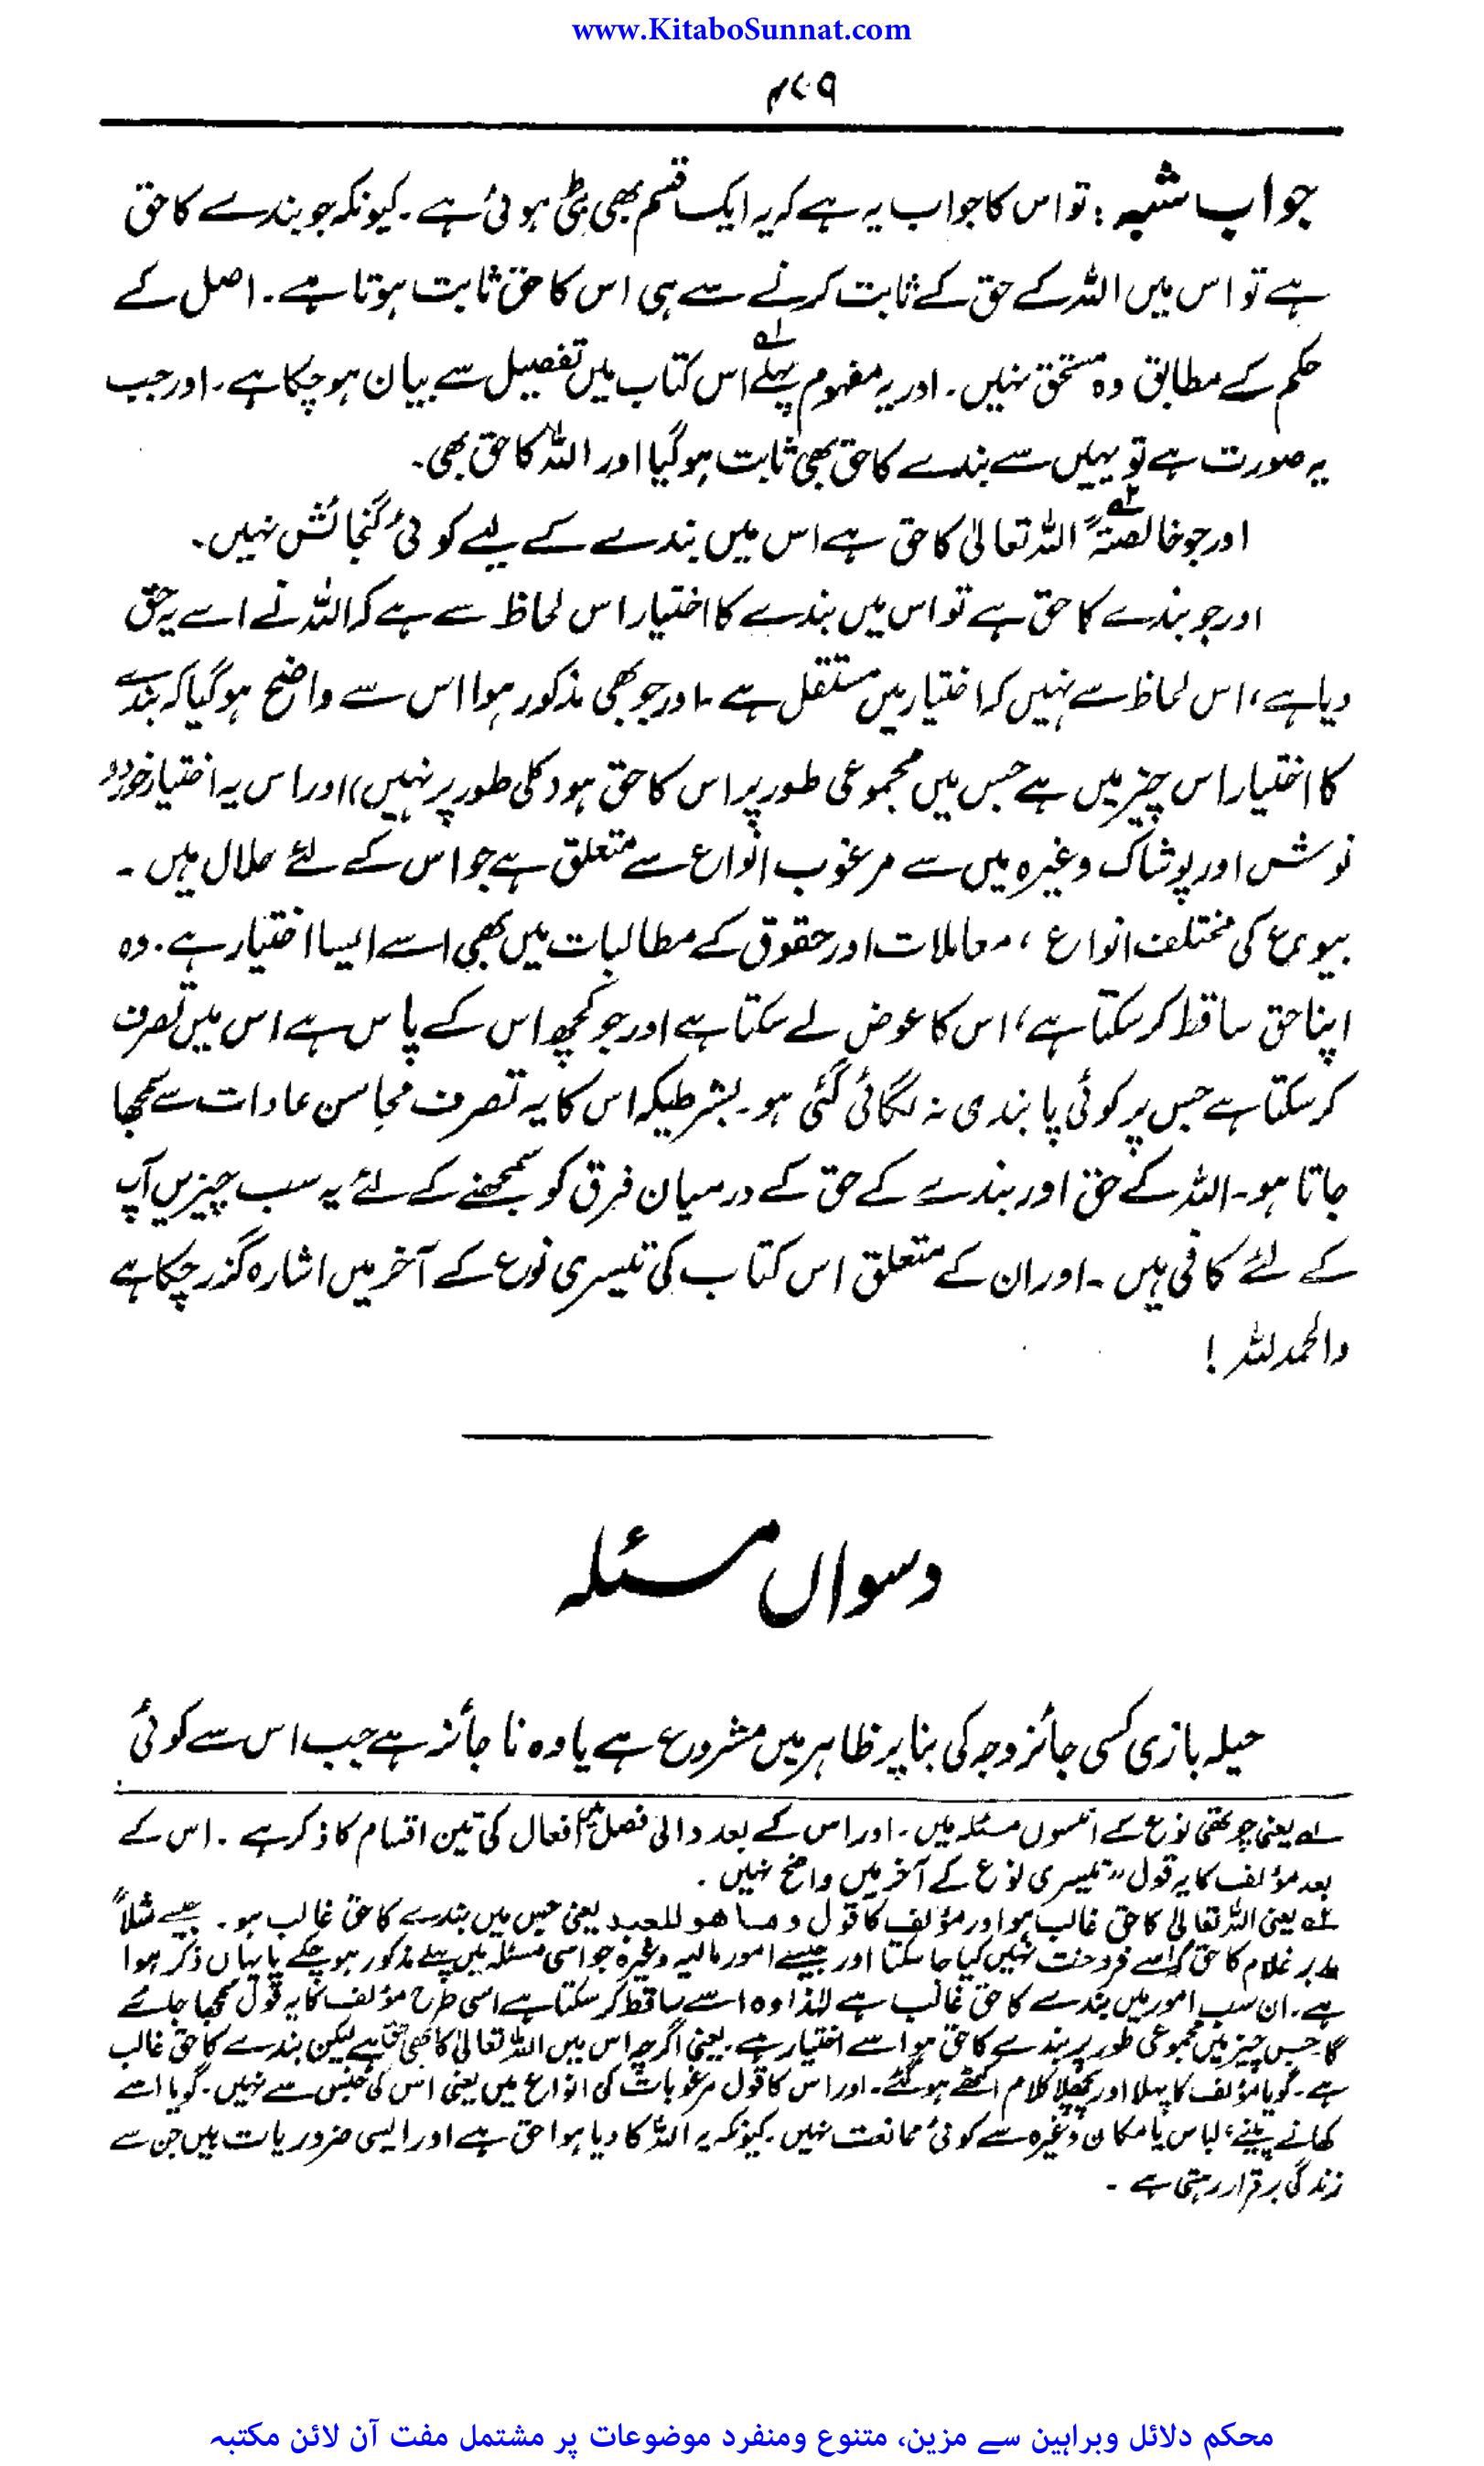 www.KitaboSunnat.com
۴۷۹
جواب شبہ : تو اس کا جواب یہ ہے کہ یہ ایک قسم بھی بٹی ہوئی ہے ۔ کیونکہ جو بندے کا حق
ہے تو اس میں اللہ کے حق کے ثابت کرنے سے ہی اس کا حق ثابت ہوتا ہے ۔ اصل کے
حکم کے مطابق وہ مستحق نہیں ۔ اور یہ مفہوم پہلے ۱ے اس کتاب میں تفصیل سے بیان ہو چکا ہے ۔ اور جب
یہ صورت ہے تو یہیں سے بندے کا حق بھی ثابت ہو گیا اور اللہ کا حق بھی ۔
اور جو خالصتہً ۲ے اللہ تعالیٰ کا حق ہے اس میں بندے کے لیے کوئی گنجائش نہیں ۔
اور جو بندے کا حق ہے تو اس میں بندے کا اختیار اس لحاظ سے ہے کہ اللہ نے اسے یہ حق
دیا ہے ، اس لحاظ سے نہیں کہ اختیار میں مستقل ہے ۔ اور جو بھی مذکور ہوا اس سے واضح ہو گیا کہ بندے
کا اختیار اس چیز میں ہے جس میں مجموعی طور پر اس کا حق ہو (کلی طور پر نہیں) اور اس یہ اختیار خورد و
نوش اور پوشاک وغیرہ میں سے مرغوب انواع سے متعلق ہے جو اس کے لئے حلال ہیں ۔
بیوع کی مختلف انواع ، معاملات اور حقوق کے مطالبات میں بھی اسے ایسا اختیار ہے ۔ وہ
اپنا حق ساقط کر سکتا ہے ، اس کا عوض لے سکتا ہے اور جو کچھ اس کے پاس ہے اس میں تصرف
کر سکتا ہے جس پر کوئی پابندی نہ لگائی گئی ہو ۔ بشرطیکہ اس کا یہ تصرف محاسن عادات سے سمجھا
جاتا ہو ۔ اللہ کے حق اور بندے کے حق کے درمیان فرق کو سمجھنے کے لئے یہ سب چیزیں آپ
کے لئے کافی ہیں ۔ اور ان کے متعلق اس کتاب کی تیسری نوع کے آخر میں اشارہ گذر چکا ہے
والحمد للہ !
دسواں مسئلہ
حیلہ بازی کسی جائز وجہ کی بنا پر ظاہر میں مشروع ہے یا وہ نا جائز ہے جب اس سے کوئی
۱ے یعنی چوتھی نوع کے انیسوں مسئلہ میں ۔ اور اس کے بعد والی فصل میں افعال کی تین اقسام کا ذکر ہے ۔ اس کے
بعد مؤلف کا یہ قول " تیسری نوع کے آخر میں واضح نہیں ۔
۲ے یعنی اللہ تعالیٰ کا حق غالب ہو اور مؤلف کا قول وما هو للعبد یعنی جس میں بندے کا حق غالب ہو ۔ جیسے مثلاً
مدبر غلام کا حق کہ اسے فروخت نہیں کیا جا سکتا اور جیسے امور مالیہ وغیرہ جو اسی مسئلہ میں پہلے مذکور ہو چکے یا یہاں ذکر ہوا
ہے ۔ ان سب امور میں بندے کا حق غالب ہے لہٰذا وہ اسے ساقط کر سکتا ہے اسی طرح مؤلف کا یہ قول سمجھا جائے
گا جس چیز میں مجموعی طور پر بندے کا حق ہو اسے اختیار ہے ۔ یعنی اگرچہ اس میں اللہ تعالیٰ کا بھی حق ہے لیکن بندے کا حق غالب
ہے ۔ گویا مؤلف کا پہلا اور پچھلا کلام اکٹھے ہو گئے ۔ اور اس کا قول مرغوبات کی انواع میں یعنی اس کی جنس سے نہیں ۔ گویا اسے
کھانے پینے ، لباس یا مکان وغیرہ سے کوئی ممانعت نہیں ۔ کیونکہ یہ اللہ کا دیا ہوا حق ہے اور ایسی ضروریات ہیں جن سے
زندگی برقرار رہتی ہے ۔
محکم دلائل وبراہین سے مزین، متنوع ومنفرد موضوعات پر مشتمل مفت آن لائن مکتبہ